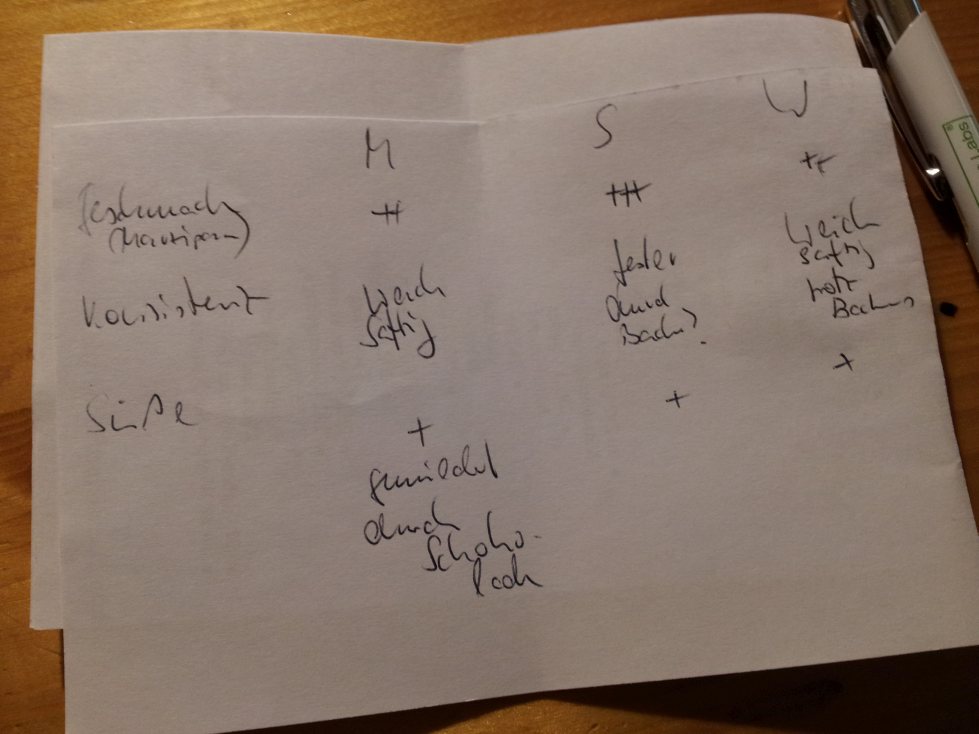 M S W
Geschmack ++ +++ ++
(Marzipan)
Konsistenz Weich fester Weich
saftig durch saftig
Backen? trotz
Backen?
Süße + + +
gemildert
durch
Schoko-